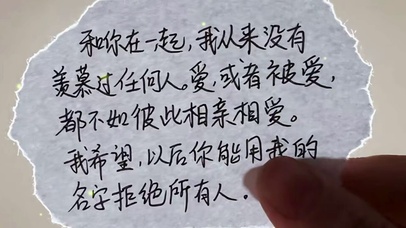 和你在一起，我从来没有
羡慕过任何人。爱，或者被爱，
都不如彼此相亲相爱。
我希望，以后你能用我的
名字拒绝所有人。